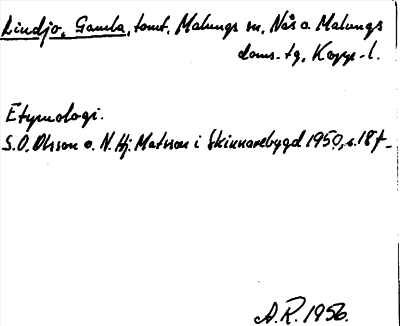 Lindjo, Gamla, tomt. Malungs sn, Nås o. Malungs
doms. tg, Kopp. l.
Etymologi.
S.O. Olsson o. N. Hj. Matsson i Skinnarebygd 1950, s. 18 f
A.R. 1956.